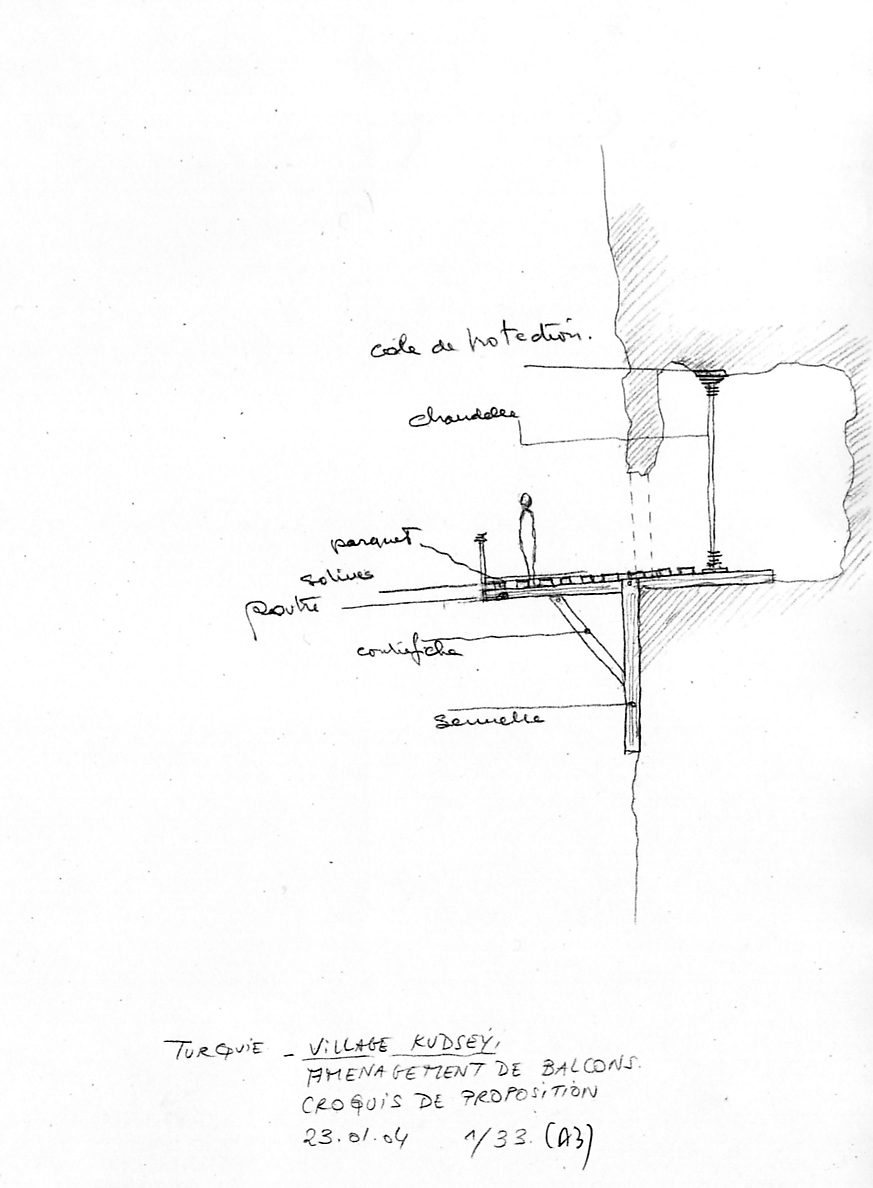 cale de protection.
chandelle
parquet
solives
poutre
contrefiche
semelle
TURQUIE - VILLAGE KUDSEY,
AMENAGEMENT DE BALCONS.
CROQUIS DE PROPOSITION
23.01.04 1/33. (A3)